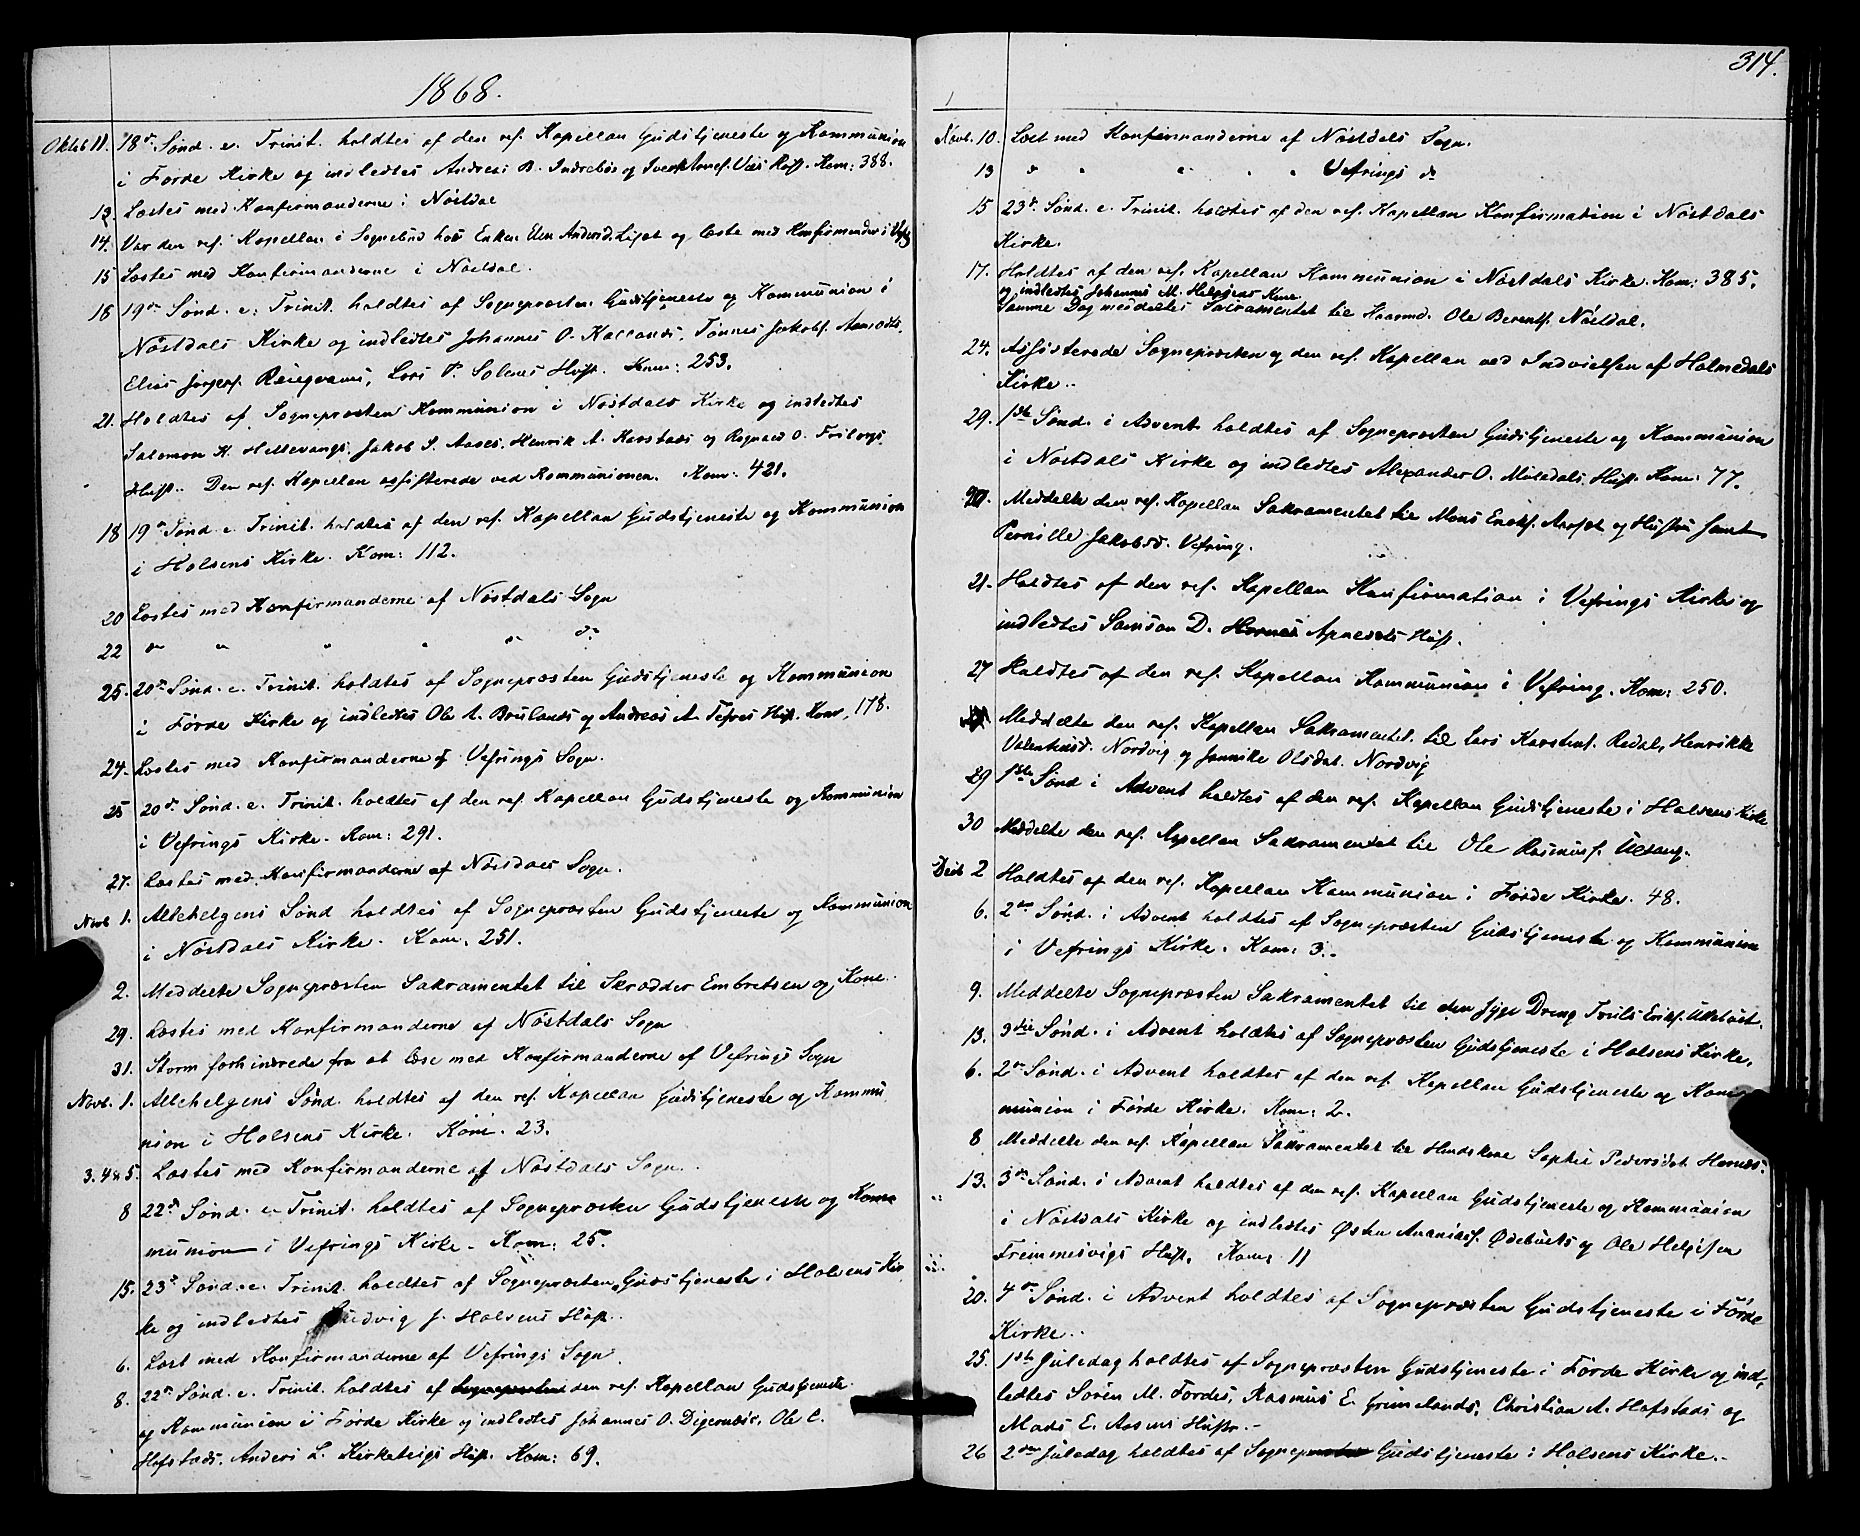 1868.
Oktob 11. 18de Sønd. e. Trinit. holdtes af den res. Kapellan Gudstjeneste og Kommunion
i Førde Kirke og indledtes Andreas B. Indrebøs og Hust. Kom: 388.
13. Læstes med Konfirmanderne i Nøstdal
14. Var den res. Kapellan i Sognebud hos Enken Elen Andersd. og læste med Konfirmander i
15 Læstes med Konfirmanderne i Nøstdal.
18 19de Sønd. e. Trinit. holdtes af Sognepræsten Gudstjeneste og Kommunion i
Nøstdals Kirke og indledtes Johannes O. Kallands, Tønnes Jakobs.
Elias Lars P. Solenes Hust. Kom: 253.
21. Holdtes af Sognepræsten Kommunion i Nøstdals Kirke og indledtes
Salomon K. Hellevangs, Jakob S. Aases, Henrik A. Karstads og Rognald O.
Hust. Den res. Kapellan assisterede ved Kommunionen. Kom: 421.
18 19de Sønd. e. Trinit. holdtes af den res. Kapellan Gudstjeneste og Kommunion
i Holsens Kirke. Kom: 112.
20 Læstes med Konfirmanderne af Nøstdals Sogn
22 " " " " do
25. 20de Sønd. e. Trinit. holdtes af Sognepræsten Gudstjeneste og Kommunion
i Førde Kirke og indledtes Ole A. Brulands og Andreas A. Tefres Hust. Kom. 178.
24. Læstes med Konfirmanderne af Vefrings Sogn.
25 20de Sønd. e. Trinit. holdtes af den res. Kapellan Gudstjeneste og Kommunion
i Vefrings Kirke. Kom: 291.
27. Læstes med Konfirmanderne af Nøstdals Sogn.
Novb 1. Allehelgens Sønd holdtes af Sognepræsten Gudstjeneste og Kommunion
i Nøstdals Kirke. Kom. 251.
2. Meddelte Sognepræsten Sakramentet til Skrædder Embretsen og Kone.
29. Læstes med Konfirmanderne af Nøstdals Sogn
31. Storm forhindrede fra at læse med Konfirmanderne af Vefrings Sogn
Novb. 1. Allehelgens Sønd. holdtes af den res. Kapellan Gudstjeneste og Kommu
nion i Holsens Kirke. Kom. 23.
3. 4 & 5. Læstes med Konfirmanderne af Nøstdals Sogn.
8 22de Sønd. e. Trinit. holdtes af Sognepræsten Gudstjeneste og Kom
munion i Vefrings Kirke. Kom: 25.
15. 23de Sønd. e. Trinit. holdtes af Sognepræsten Gudstjeneste i Holsens Kir
ke og indledtes Ludvig J. Holsens Hust.
6. Læst med Konfirmanderne af Vefrings Sogn.
8. 22de Sønd. e. Trinit. holdtes af Sognepræsten den res. Kapellan Gudstjeneste
og Kommunion i Førde Kirke og indledtes Johannes O. Digernæs, Ole C.
Hofstads. Anders L. Kirketeigs Hust. Kom: 69.
314.
Novb. 10. Læst med Konfirmanderne af Nøstdals Sogn.
13 " " " " " Vefrings do
15 23de Sønd. e. Trinit. holdtes af den res. Kapellan Konfirmation i Nøstdals
Kirke.
17. Holdtes af den res. Kapellan Kommunion i Nøstdals Kirke. Kom: 385.
og indledtes Johannes M. Helgesens Kone.
Samme Dag meddeltes Sakramentet til Ole Berents. Nøstdal.
24. Assisterede Sognepræsten og den res. Kapellan ved Indvielsen af Holmedals
Kirke.
29. 1ste Sønd. i Advent holdtes af Sognepræsten Gudstjeneste og Kommunion
i Nøstdals Kirke og indledtes Alexander O. Hust. Kom: 77.
20. Meddelte den res. Kapellan Sakramentet til Mons Eriks. og Hustru samt
Pernille Jakobsd. Vefring.
21. Holdtes af den res. Kapellan Konfirmation i Vefrings Kirke og
indledtes Samson D. Hornes Apnesets Hust.
27 Holdtes af den res. Kapellan Kommunion i Vefring. Kom: 250.
Meddelte den res. Kapellan Sakramentet til Lars Karstens. Redal, Henrikke
Valentinsd. Nordvig og Jannike Olsdat. Nordvig
29 1ste Sønd i Advent holdtes af den res. Kapellan Gudstjeneste i Holsens Kirke
30 Meddelte den res. Kapellan Sakramentet til Ole Rasmus.
Decb 2 Holdtes af den res. Kapellan Kommunion i Førde Kirke. 48.
6. 2den Sønd. i Advent holdtes af Sognepræsten Gudstjeneste og Kommunion
i Vefrings Kirke. Kom: 3.
9. Meddelte Sognepræsten Sakramentet til den syge Dreng Truls Eriks.
13. 3die Sønd. i Advent holdtes af Sognepræsten Gudstjeneste i Holsens Kirke.
6. 2den Sønd. i Advent holdtes af den res. Kapellan Gudstjeneste og Kom
munion i Førde Kirke. Kom: 2.
8 Meddelte den res. Kapellan Sakramentet til Huuskone Sophie Pedersdat. Hornæs.
13. 3die Sønd. i Advent holdtes af den res. Kapellan Gudstjeneste og Kommunion
i Nøstdals Kirke og indledtes Østen Ananias. Ødebøets og Ole Helgesen
Fremmesvigs Hust. Kom. 11
20. 4de Sønd. i Advent holdtes af Sognepræsten Gudstjeneste i Førde
Kirke.
25. 1ste Juledag holdtes af Sognepræsten Gudstjeneste i Førde Kirke og ind-
ledtes Søren M. Førdes, Rasmus E. Grimelands, Christian A. Hofstads og
Mads E. Aasens Hustr.
26 2den Juledag holdtes af Sognepræsten Gudstjeneste i Holsens Kirke.